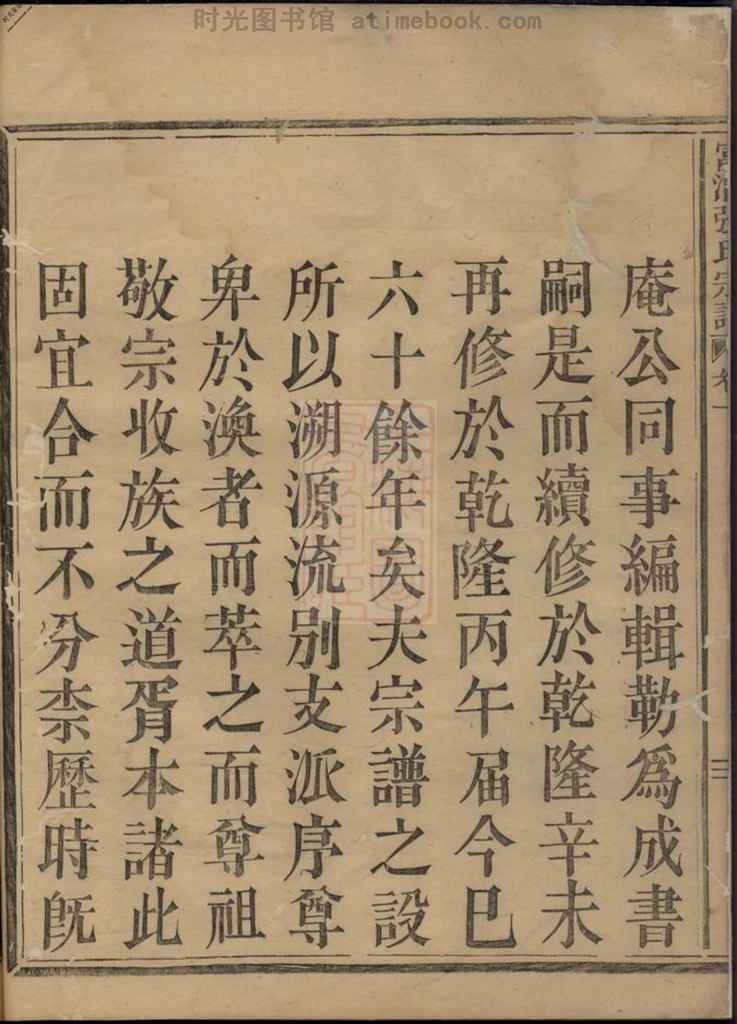 时光图书馆 atimebook.com
張氏宗譜 卷一
三
庵公同事編輯勒爲成書
嗣是而續修於乾隆辛未
再修於乾隆丙午届今巳
六十餘年矣夫宗譜之設
所以溯源流别支派序尊
卑於渙者而萃之而尊祖
敬宗收族之道胥本諸此
固宜合而不分柰歷時旣